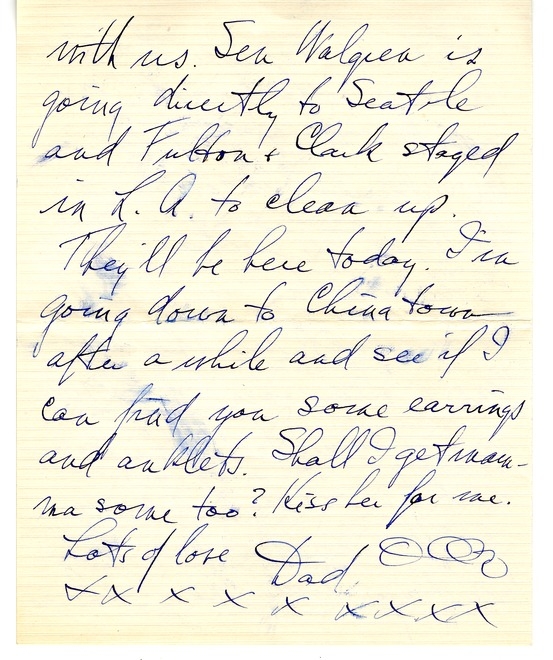 with us. Sen Walgren is
going directly to Seattle
and Fulton & Clark stayed
in L. A. to clean up.
They'll be here today. I'm
going down to Chinatown
after a while and see if I
can find you some earrings
and anklets. Shall I get mam-
ma some too? Kiss her for me.
Lots of love Dad OOO
XX X X X XXXX